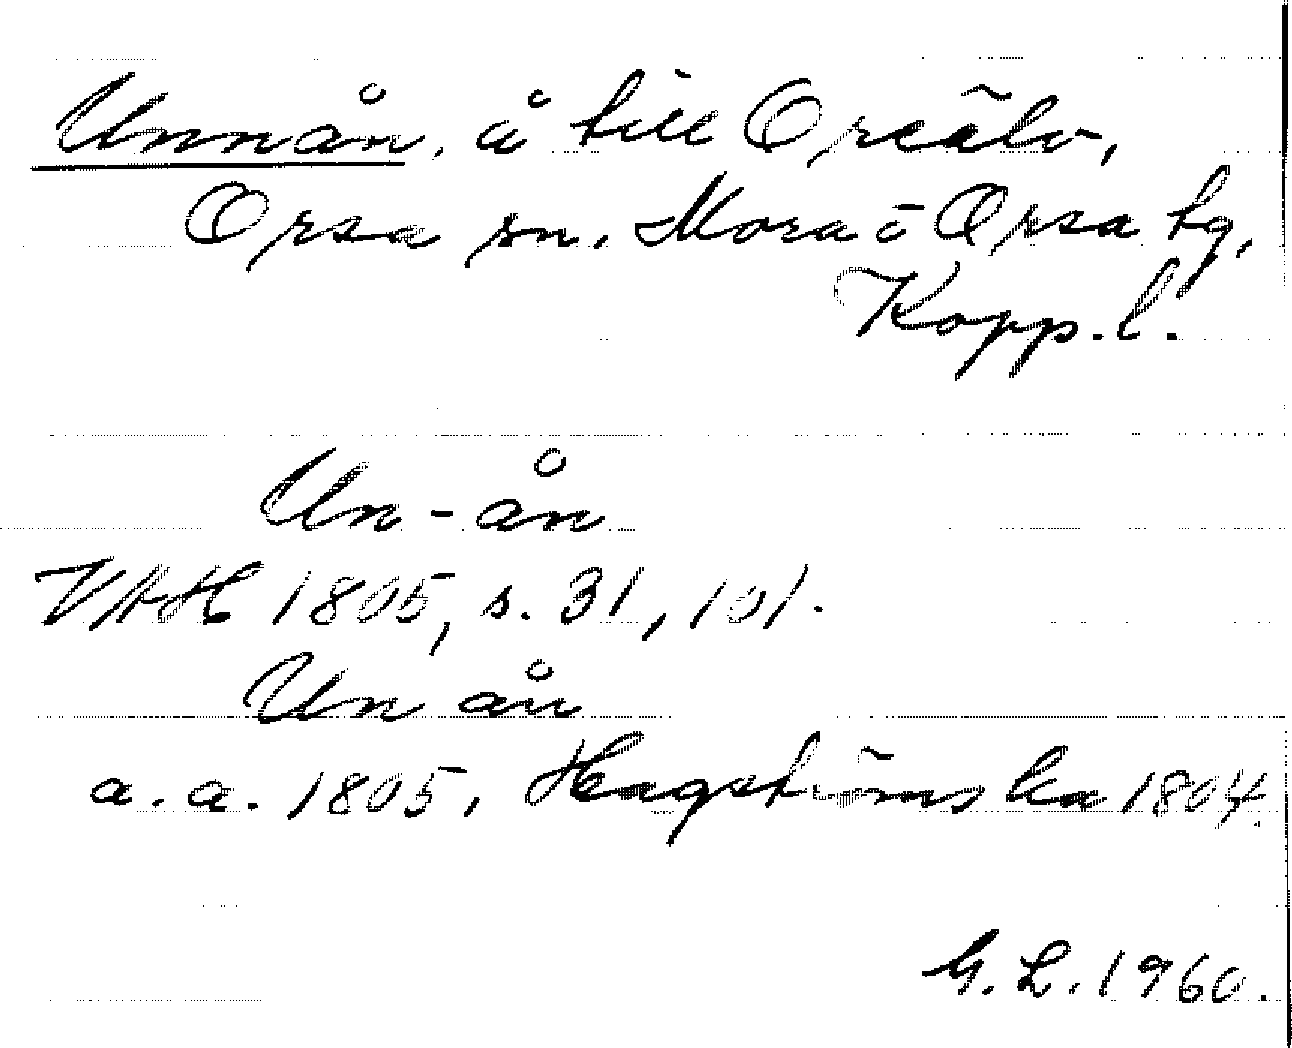 Unnån, å till Oreälv,
Orsa sn. Mora o Orsa tg,
Kopp. l.
Un-ån
VAH 1805, s. 31, 101.
Un ån
a. a. 1805, Hagströms ka 1804.
G. L. 1960.